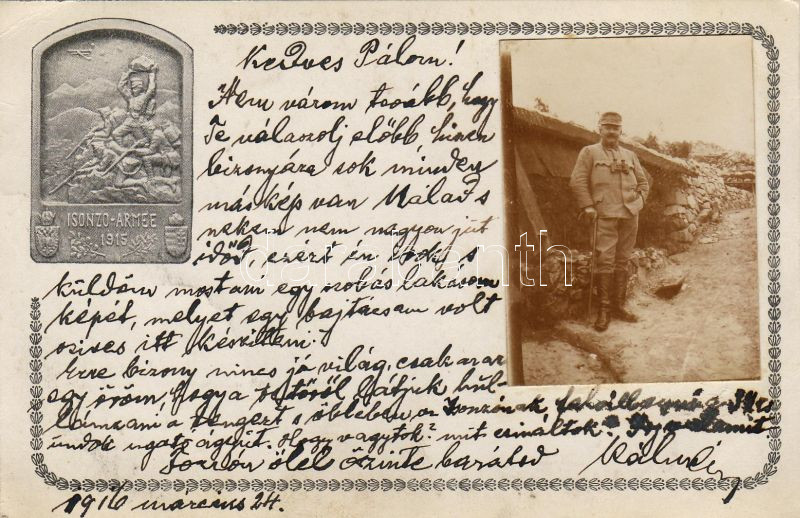 ISONZO-ARMEE
1915
Kedves Pálom!
Nem várom tovább, hogy
Te válaszolj előbb, hiszen
bizonyára sok minden
máskép van Nálad s
nekem nem nagyon jut
időt, ezért én
küldöm mostani egy szobás lakásom
képét, melyet egy bajtársam volt
szives itt készíteni.
Erre bizony nincs jó világ, csak az az
egy öröm, hogy a tetőről látjuk hul-
lámzani a tengert s öblében az Isonzónak,
Hogy vagytok? mit csináltok?
Forrón ölel őszinte barátod Kálmán
1916 március 24.
darabanth